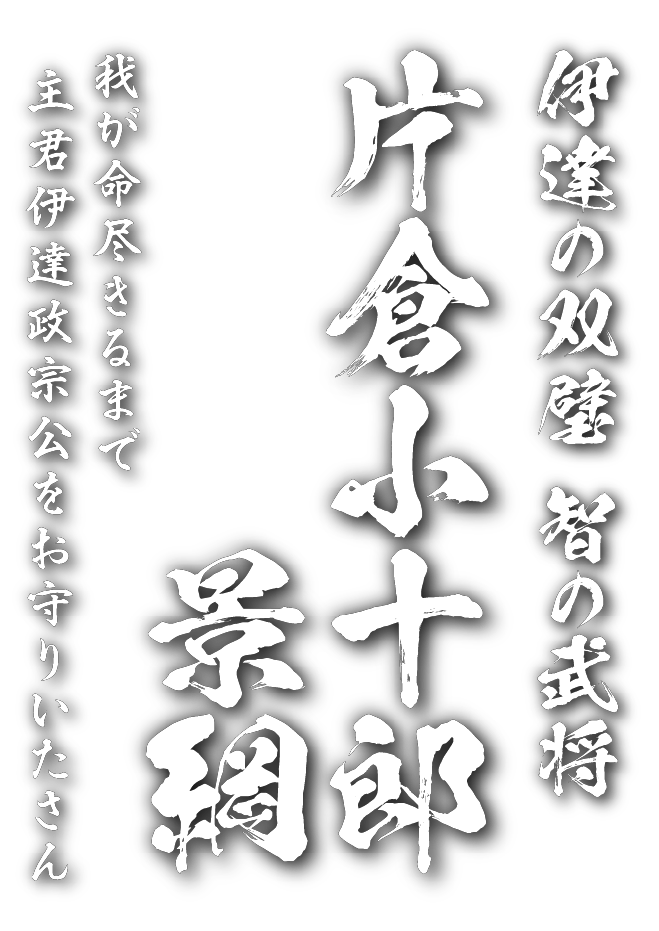 伊達の双璧 智の武将
片倉小十郎
景綱
我が命尽きるまで
主君伊達政宗公をお守りいたさん